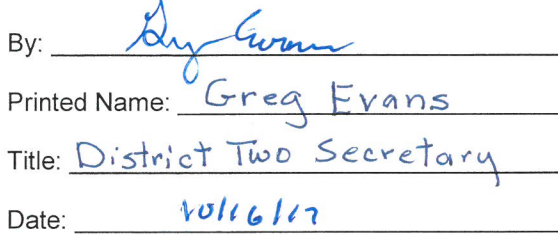 By: Greg Evans
Printed Name: Greg Evans
Title: District Two Secretary
Date: 10/16/17